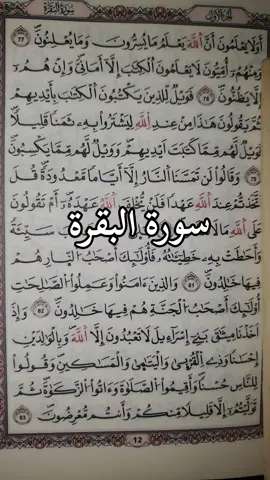 الجزء الأول
سورة البقرة
أَوَلَا يَعْلَمُونَ أَنَّ اللَّهَ يَعْلَمُ مَا يُسِرُّونَ وَمَا يُعْلِنُونَ ٧٧
وَمِنْهُمْ أُمِّيُّونَ لَا يَعْلَمُونَ الْكِتَابَ إِلَّا أَمَانِيَّ وَإِنْ هُمْ
إِلَّا يَظُنُّونَ ٧٨ فَوَيْلٌ لِلَّذِينَ يَكْتُبُونَ الْكِتَابَ بِأَيْدِيهِمْ
ثُمَّ يَقُولُونَ هَٰذَا مِنْ عِنْدِ اللَّهِ لِيَشْتَرُوا بِهِ ثَمَنًا قَلِيلًا
فَوَيْلٌ لَهُمْ مِمَّا كَتَبَتْ أَيْدِيهِمْ وَوَيْلٌ لَهُمْ مِمَّا يَكْسِبُونَ
٧٩ وَقَالُوا لَنْ تَمَسَّنَا النَّارُ إِلَّا أَيَّامًا مَعْدُودَةً قُلْ
أَتَّخَذْتُمْ عِنْدَ اللَّهِ عَهْدًا فَلَنْ يُخْلِفَ اللَّهُ عَهْدَهُ أَمْ تَقُولُونَ
عَلَى اللَّهِ مَا لَا
سورة البقرة
سَيِّئَةً
وَأَحَاطَتْ بِهِ خَطِيئَتُهُ فَأُولَٰئِكَ أَصْحَابُ النَّارِ هُمْ
فِيهَا خَالِدُونَ ٨١ وَالَّذِينَ آمَنُوا وَعَمِلُوا الصَّالِحَاتِ
أُولَٰئِكَ أَصْحَابُ الْجَنَّةِ هُمْ فِيهَا خَالِدُونَ ٨٢ وَإِذْ
أَخَذْنَا مِيثَاقَ بَنِي إِسْرَائِيلَ لَا تَعْبُدُونَ إِلَّا اللَّهَ وَبِالْوَالِدَيْنِ
إِحْسَانًا وَذِي الْقُرْبَىٰ وَالْيَتَامَىٰ وَالْمَسَاكِينِ وَقُولُوا
لِلنَّاسِ حُسْنًا وَأَقِيمُوا الصَّلَاةَ وَآتُوا الزَّكَاةَ ثُمَّ
تَوَلَّيْتُمْ إِلَّا قَلِيلًا مِنْكُمْ وَأَنْتُمْ مُعْرِضُونَ ٨٣
12